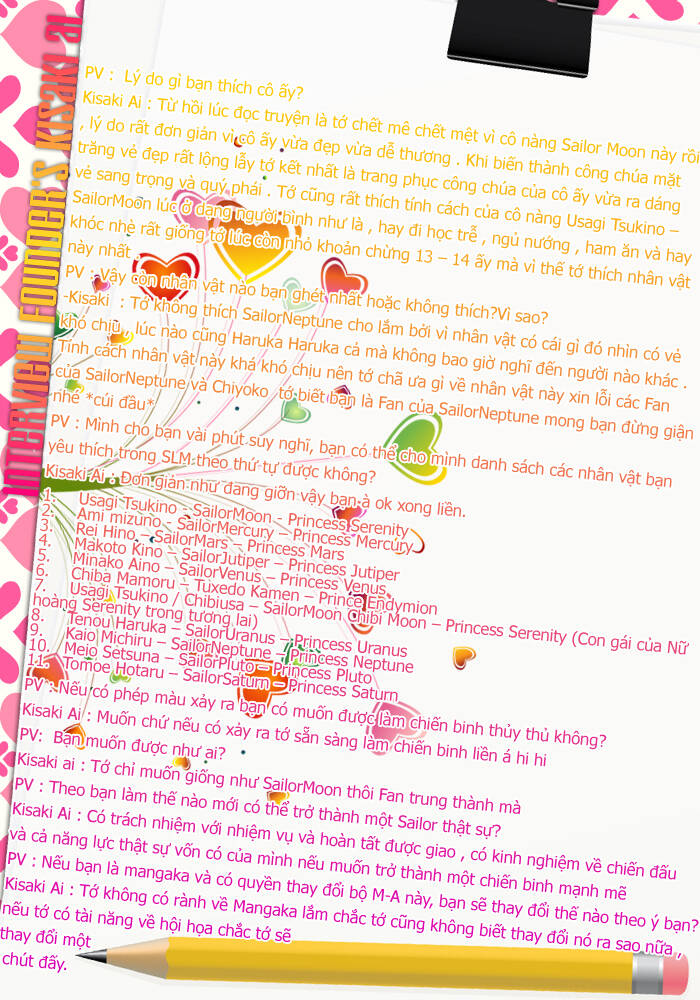 INTERVIEW FOUNDER'S KISAKI AI
PV : Lý do gì bạn thích cô ấy?
Kisaki Ai : Từ hồi lúc đọc truyện là tớ chết mê chết mệt vì cô nàng Sailor Moon này rồi
, lý do rất đơn giản vì cô ấy vừa đẹp vừa dễ thương . Khi biến thành công chúa mặt
trăng vẻ đẹp rất lộng lẫy tớ kết nhất là trang phục công chúa của cô ấy vừa ra dáng
vẻ sang trọng và quý phái . Tớ cũng rất thích tính cách của cô nàng Usagi Tsukino –
SailorMoon lúc ở dạng người bình như là , hay đi học trễ , ngủ nướng , ham ăn và hay
khóc nhè rất giống tớ lúc còn nhỏ khoản chừng 13 – 14 ấy mà vì thế tớ thích nhân vật
này nhất .
PV : Vậy còn nhân vật nào bạn ghét nhất hoặc không thích?Vì sao?
-Kisaki : Tớ không thích SailorNeptune cho lắm bởi vì nhân vật có cái gì đó nhìn có vẻ
khó chịu , lúc nào cũng Haruka Haruka cả mà không bao giờ nghĩ đến người nào khác .
Tính cách nhân vật này khá khó chịu nên tớ chã ưa gì về nhân vật này xin lỗi các Fan
của SailorNeptune và Chiyoko tớ biết bạn là Fan của SailorNeptune mong bạn đừng giận
nhé *cúi đầu*
PV : Mình cho bạn vài phút suy nghĩ, bạn có thể cho mình danh sách các nhân vật bạn
yêu thích trong SLM theo thứ tự được không?
Kisaki Ai : Đơn giản như đang giỡn vậy bạn à ok xong liền.
1. Usagi Tsukino - SailorMoon - Princess Serenity
2. Ami mizuno - SailorMercury – Princess Mercury
3. Rei Hino – SailorMars – Princess Mars
4. Makoto Kino – SailorJutiper – Princess Jutiper
5. Minako Aino – SailorVenus – Princess Venus
6. Chiba Mamoru – Tuxedo Kamen – Prince Endymion
7. Usagi Tsukino / Chibiusa – SailorMoon Chibi Moon – Princess Serenity (Con gái của Nữ
hoàng Serenity trong tương lai)
8. Tenou Haruka – SailorUranus – Princess Uranus
9. Kaio Michiru – SailorNeptune – Princess Neptune
10. Meio Setsuna – SailorPluto – Princess Pluto
11. Tomoe Hotaru – SailorSaturn – Princess Saturn
PV : Nếu có phép màu xảy ra bạn có muốn được làm chiến binh thủy thủ không?
Kisaki Ai : Muốn chứ nếu có xảy ra tớ sẵn sàng làm chiến binh liền á hi hi
PV: Bạn muốn được như ai?
Kisaki ai : Tớ chỉ muốn giống như SailorMoon thôi Fan trung thành mà
PV : Theo bạn làm thế nào mới có thể trở thành một Sailor thật sự?
Kisaki Ai : Có trách nhiệm với nhiệm vụ và hoàn tất được giao , có kinh nghiệm về chiến đấu
và cả năng lực thật sự vốn có của mình nếu muốn trở thành một chiến binh mạnh mẽ
PV : Nếu bạn là mangaka và có quyền thay đổi bộ M-A này, bạn sẽ thay đổi thế nào theo ý bạn?
Kisaki Ai : Tớ không có rành về Mangaka lắm chắc tớ cũng không biết thay đổi nó ra sao nữa ,
nếu tớ có tài năng về hội họa chắc tớ sẽ
thay đổi một
chút đấy.